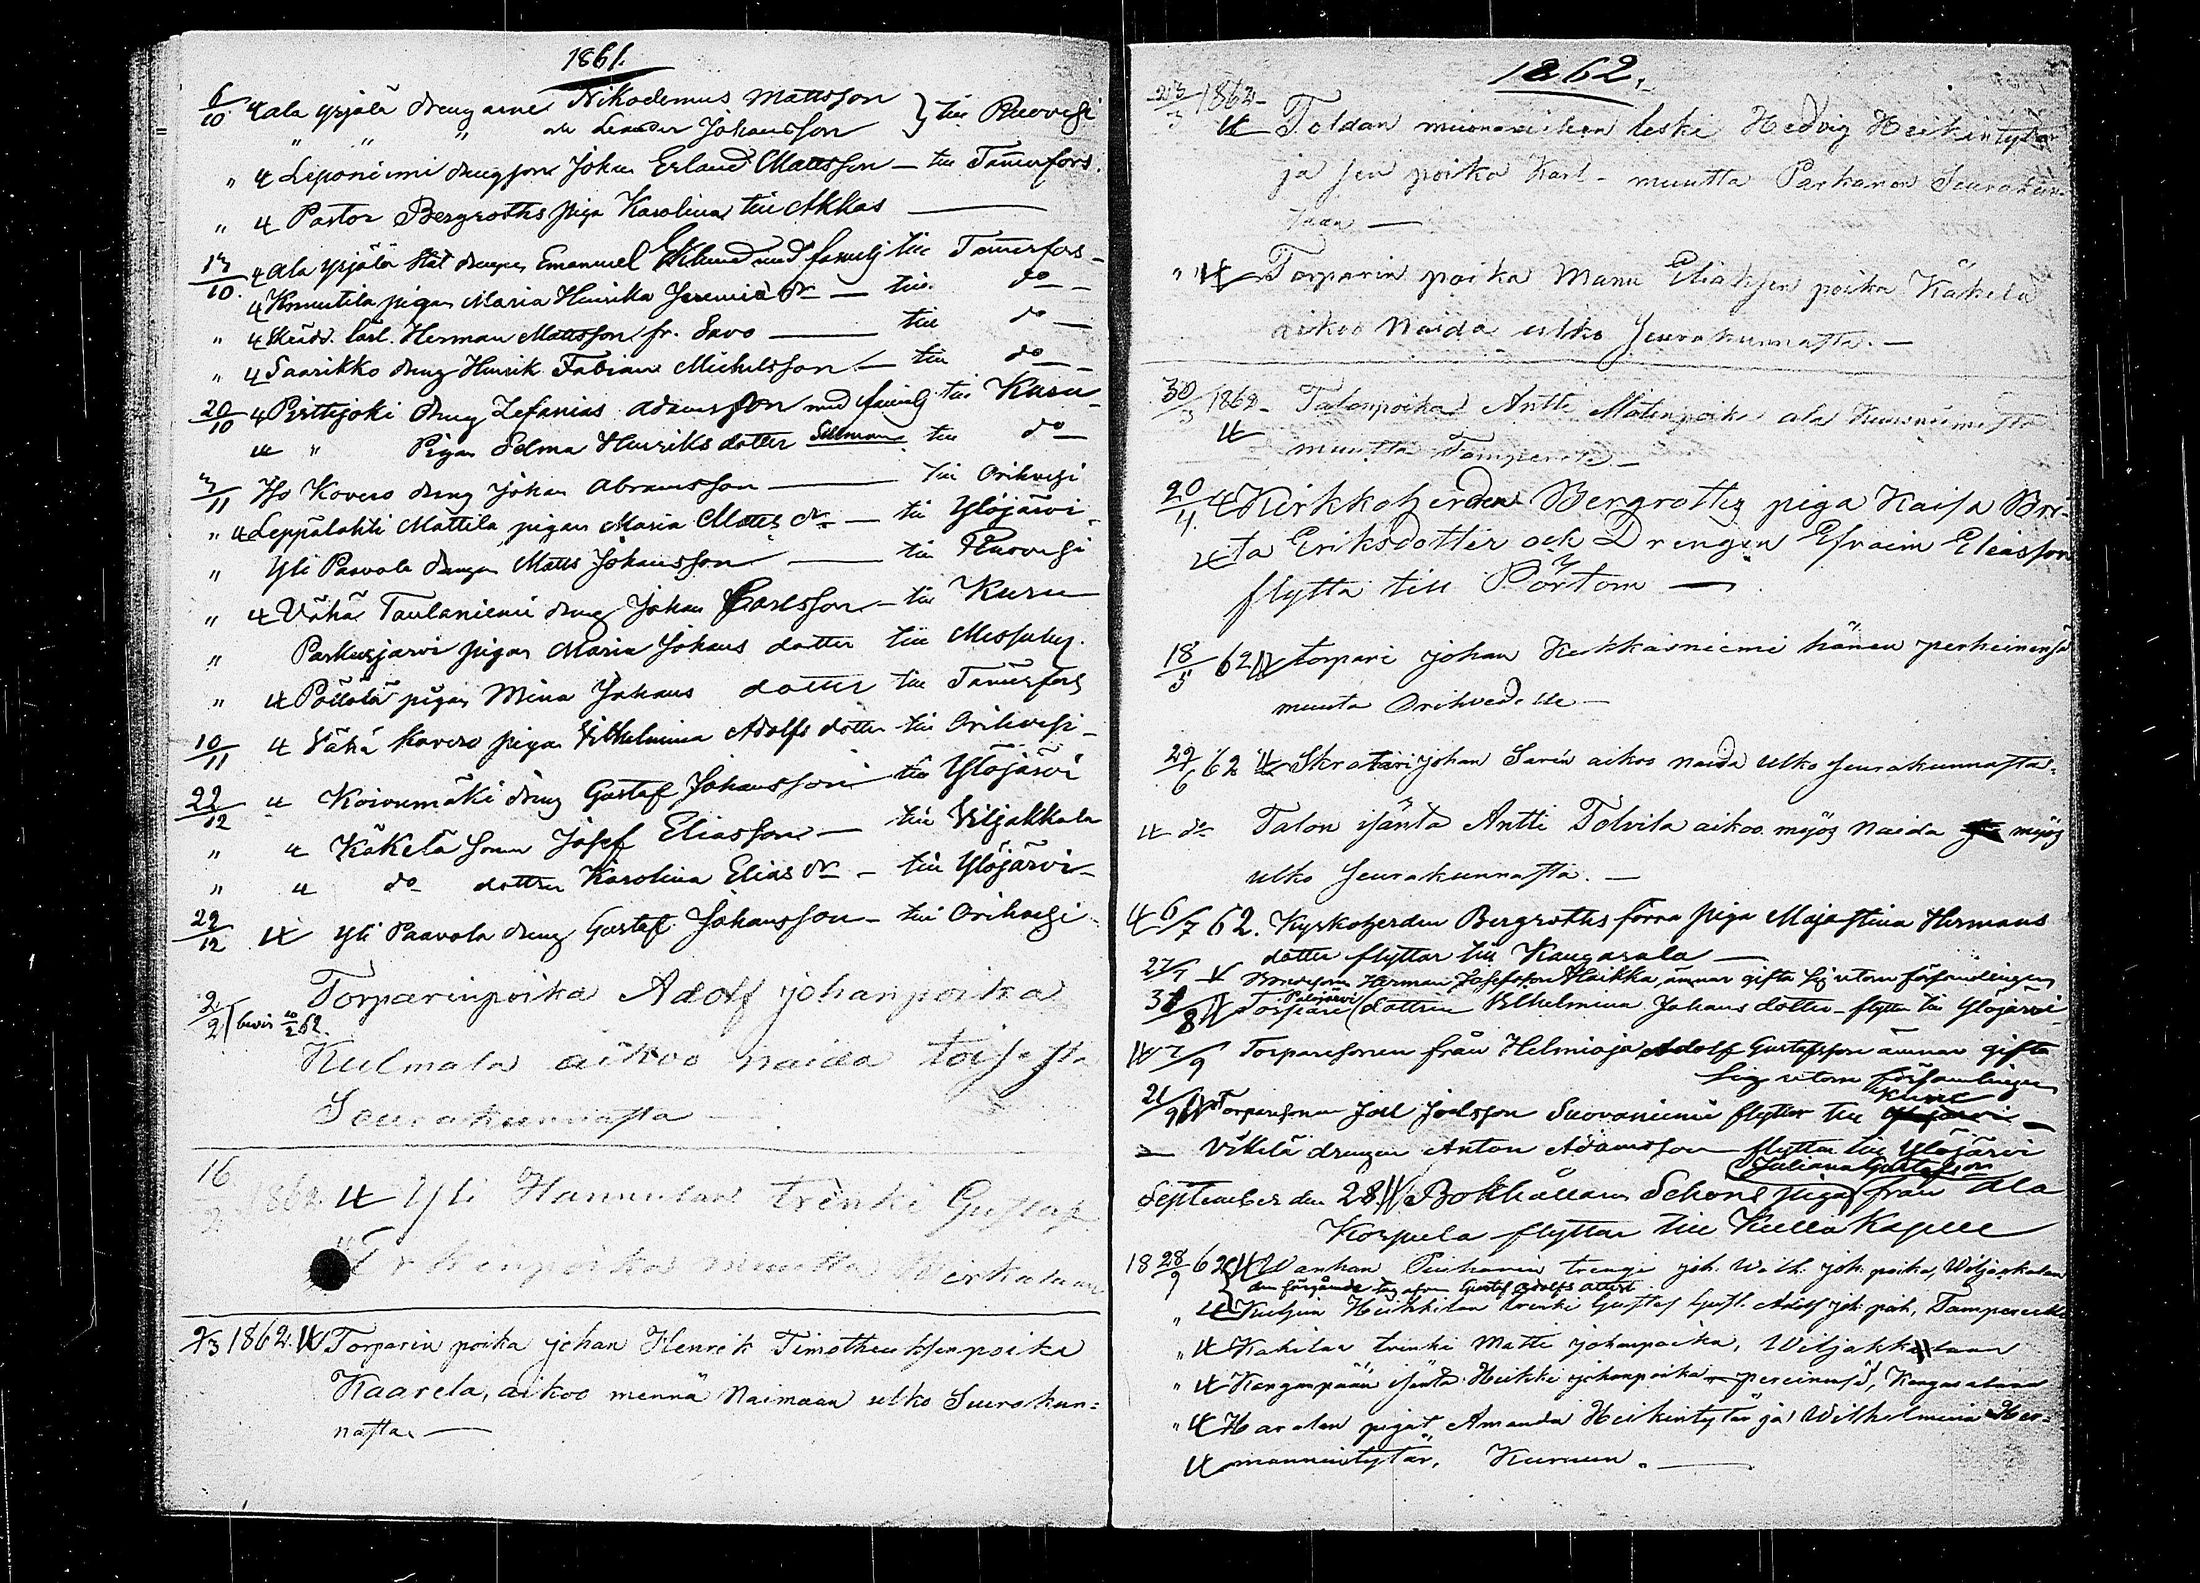 1861.
6/10 4 ala yrjälä drengarne Nikodemus Mattsson
" " " och Leander Johansson } till Ruovesi
" 4 Leponiemi drengson Johan Erland Mattsson — till Tam̄erfors.
" 4 Pastor Bergroths piga Karolina till Akkas —
13/10. 4 ala yrjälä stat drengen Emanuel Eklund med familj till Tam̄erfors —
4 Knuutila pigan Maria Henrika Jeremiä dr — till do —
" 4 Skräd. lärl. Herman Mattsson fr. Savo — till do —
" 4 Saarikko dreng Henrik Fabian Michelsson — till do —
20/10 4 Pirttijoki dreng Zefanias Adamsson med familj till Kuru —
" Pigan Selma Henriksdotter till do —
3/11 Iso Kovero dreng Johan Abramsson — till Orihvesi
" 4 Leppälahti Mattila pigan Maria Matts dr — till Ylöjärvi —
" Yli Paavola drengen Matts Johansson — till Ruovesi
" 4 Vähä Taulaniemi dreng Johan Carlsson — till Kuru —
" Parkusjärvi pigan Maria Johans dotter till Messuby.
" 4 Pöllölä pigan Mina Johans dotter till Tam̄erfors
10/11 4 Vähä Kovero pigan Vilhelmina Adolfs dotter till Orihvesi —
22/12 4 Koivumäki dreng Gustaf Johansson till Ylöjärvi
" 4 Käkelä sonen Josef Eliasson — till Viljakkala
" 4 do dottren Karolina Elias dr — till Ylöjärvi —
22/12 4 Yli Paavola dreng Gustaf Johansson — till Orihvesi
2/2 Torparinpoika Adolf johanpoika
bevis 62.
Kulmala aikoo naida toisesta
Seurakunnasta —
16/2 1862 4 Yli Hannulan trenki Gustaf
Erkinpoika muutta
2/3 1862. 4 Torparin poika johan Henrik Timotheuksenpoika
Kaarela, aikoo mennä Naimaan ulko Seurakun=
nasta —
1862.
23/3 1862
4 Toldan muonamiehen leski Hedvig Heikintytär
ja sen poika Karl — muutta Parkanon Seurakun=
taan —
" 4 Torparin poika Manu Eliaksen poika Käkelä
aikoo Naida ulko seurakunnasta. —
30/3 1862 — Talonpoika Antti Matinpoika ala
4 muutta Tampereelle —
20/4. 4 Kirkkoherden Bergroths piga Kaisa Bri=
4 ta Eriksdotter och Drengen Efraim Eliasson
flytta till Pörtom —
18/5 62 4 torpari johan Kekkäsniemi hänen perheinensä
muuta Orihvedelle —
29/6 62 4 Skratäri johan Sarén aikoo naida ulko seurakunnasta.
4 do Talon isäntä Antti Tolvila aikoo myös naida myös
ulko seurakunnasta. —
4 6/7 62. Kyrkoherden Bergroths förra piga Maja Stina Hermans
dotter flyttar till Kangasala —
27/7 4 Bondeson Herman Josefsson Haikka, ämnar gifta sig utom församlingen
8 4 Torpare Palojärvi dottren Vilhelmina Johans dotter — flyttar till Ylöjärvi —
4 7/9 Torparesonen från Helmioja Adolf Gustafsson ämnar gifta
sig utom församlingen
21/9 4 Torparesonen Joel Joelsson Suovaniemi flyttar till Kuru —
— Vikelä drengen Anton Adamsson flyttar till Ylöjärvi
Juliana Gustafsdr
September den 28. 4 Bokhållaren Schons piga från ala
Korpula flyttar till Kullä Kapell
18 28/9 62 4 Wanhan trengi joh. Wilh. joh. poika, Wiljakalan
den föregående tog afven Gustaf Adolfs attest
" 4 Kuljun Heikkilän trenki Gustaf Adolf joh. poik, Tampereelle
" 4 Kakilan trenki Matti johanpoika, Wiljakkalaan
" 4 Kangaspään isäntä Heikki johanpoika pereinensä, Kangasalaan
" 4 Haralan pigat Amanda Heikintytär ja Wilhelmina Her=
4 mannintytär, Kuruun. —